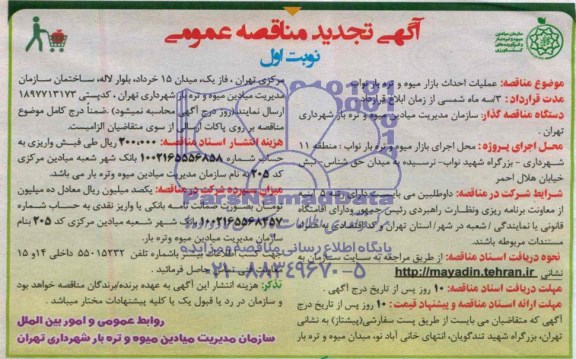 سازمان میادین
میوه و تره بار
آگهی تجدید مناقصه عمومی
نوبت اول
موضوع مناقصه: عملیات احداث بازار میوه و تره بار نواب
مدت قرارداد: ۳/سه ماه شمسی از زمان ابلاغ قرارداد
دستگاه مناقصه گذار: سازمان مدیریت میادین میوه و تره بار شهرداری
تهران .
محل اجرای پروژه : محل اجرای بازار میوه و تره بار نواب : منطقه ۱۱
شهرداری - بزرگراه شهید نواب- نرسیده به میدان حق شناس- نبش
خیابان هلال احمر
شرایط شرکت در مناقصه: داوطلبین می بایست دارای رتبه ۵ ابنیه
از معاونت برنامه ریزی ونظارت راهبردی رئیس جمهور ودارای اقامتگاه
قانونی یا نمایندگی / شعبه در شهر/ استان تهران و کد اقتصادی به همراه
مستندات مربوطه باشند.
نحوه دریافت اسناد مناقصه: از طریق مراجعه به سایت سازمان به
نشانی http://mayadin.tehran.ir
مهلت دریافت اسناد مناقصه: ۱۰ روز پس از تاریخ درج آگهی .
مهلت ارائه اسناد مناقصه و پیشنهاد قیمت : ۱۰ روز پس از تاریخ درج
آگهی که متقاضیان می بایست از طریق پست سفارشی(پیشتاز) به نشانی
تهران، بزرگراه شهید تندگویان، انتهای خانی آباد نو، میدان میوه و تره بار
مرکزی تهران ، فاز یک، میدان ۱۵ خرداد، بلوار لاله، ساختمان سازمان
مدیریت میادین میوه و تره بار شهرداری تهران ، کدپستی ۱۸۹۷۷۱۳۱۷۳
ارسال نمایند(روز درج آگهی محاسبه نمیشود) .ضمناً درج کامل موضوع
مناقصه بر روی پاکات ارسالی از سوی متقاضیان الزامیست.
هزینه انتشار اسناد مناقصه: ۲۰۰،۰۰۰ ریال طی فیش واریزی به
حساب شماره ۱۰۰۲۱۶۵۵۵۶۸۵۸ بانک شهر شعبه میادین مرکزی
کد ۲۰۵ به نام سازمان مدیریت میادین میوه وتره بار می باشد.
میزان سپرده شرکت در مناقصه: یکصد میلیون ریال معادل ده میلیون
تومان بصورت ضمانت نامه بانکی یا واریز نقدی به حساب شماره
۱۰۰۲۱۶۵۵۶۸۲۵۷ بانک شهر شعبه میادین مرکزی کد ۲۰۵ بنام
سازمان مدیریت میادین میوه وتره بار.
جهت کسب اطلاعات بیشتر باشماره تلفن ۵۵۰۱۵۲۳۲ داخلی ۱۴ و ۱۵
تماس حاصل فرمائید.
تذکر: هزینه انتشار این آگهی به عهده برنده/برندگان مناقصه خواهد بود
و سازمان در رد یا قبول یک یا کلیه پیشنهادات مختار میباشد .
روابط عمومی و امور بین الملل
سازمان مدیریت میادین میوه و تره بار شهرداری تهران
ParsNamadData
پایگاه اطلاع رسانی مناقصه و مزایده
۰۲۱-۸۸۳۴۹۶۷۰-۵